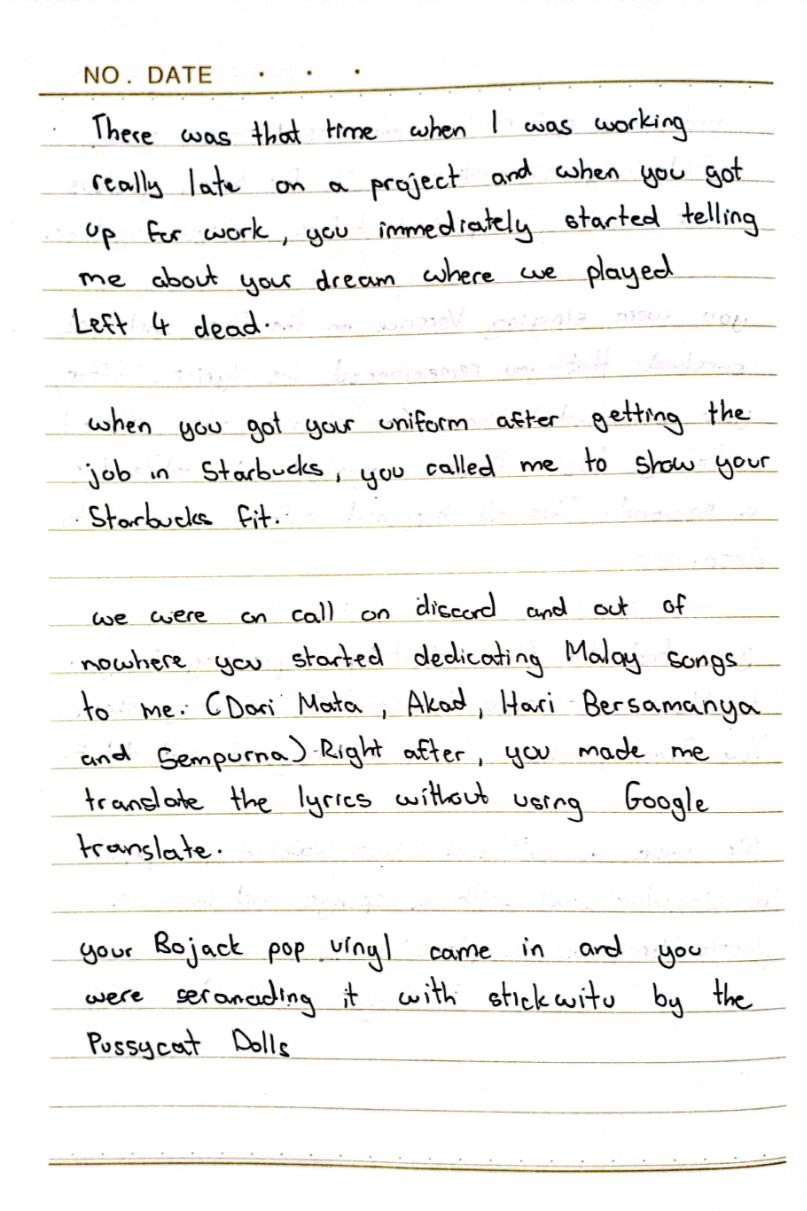 NO. DATE
There was that time when I was working
really late on a project and when you got
up for work, you immediately started telling
me about your dream where we played
Left 4 dead.
when you got your uniform after getting the
job in Starbucks, you called me to show your
Starbucks fit.
we were on call on discord and out of
nowhere you started dedicating Malay songs
to me. (Dari Mata, Akad, Hari Bersamanya
and Sempurna) Right after, you made me
translate the lyrics without using Google
translate.
your Bojack pop vinyl came in and you
were seranading it with stickwitu by the
Pussycat Dolls